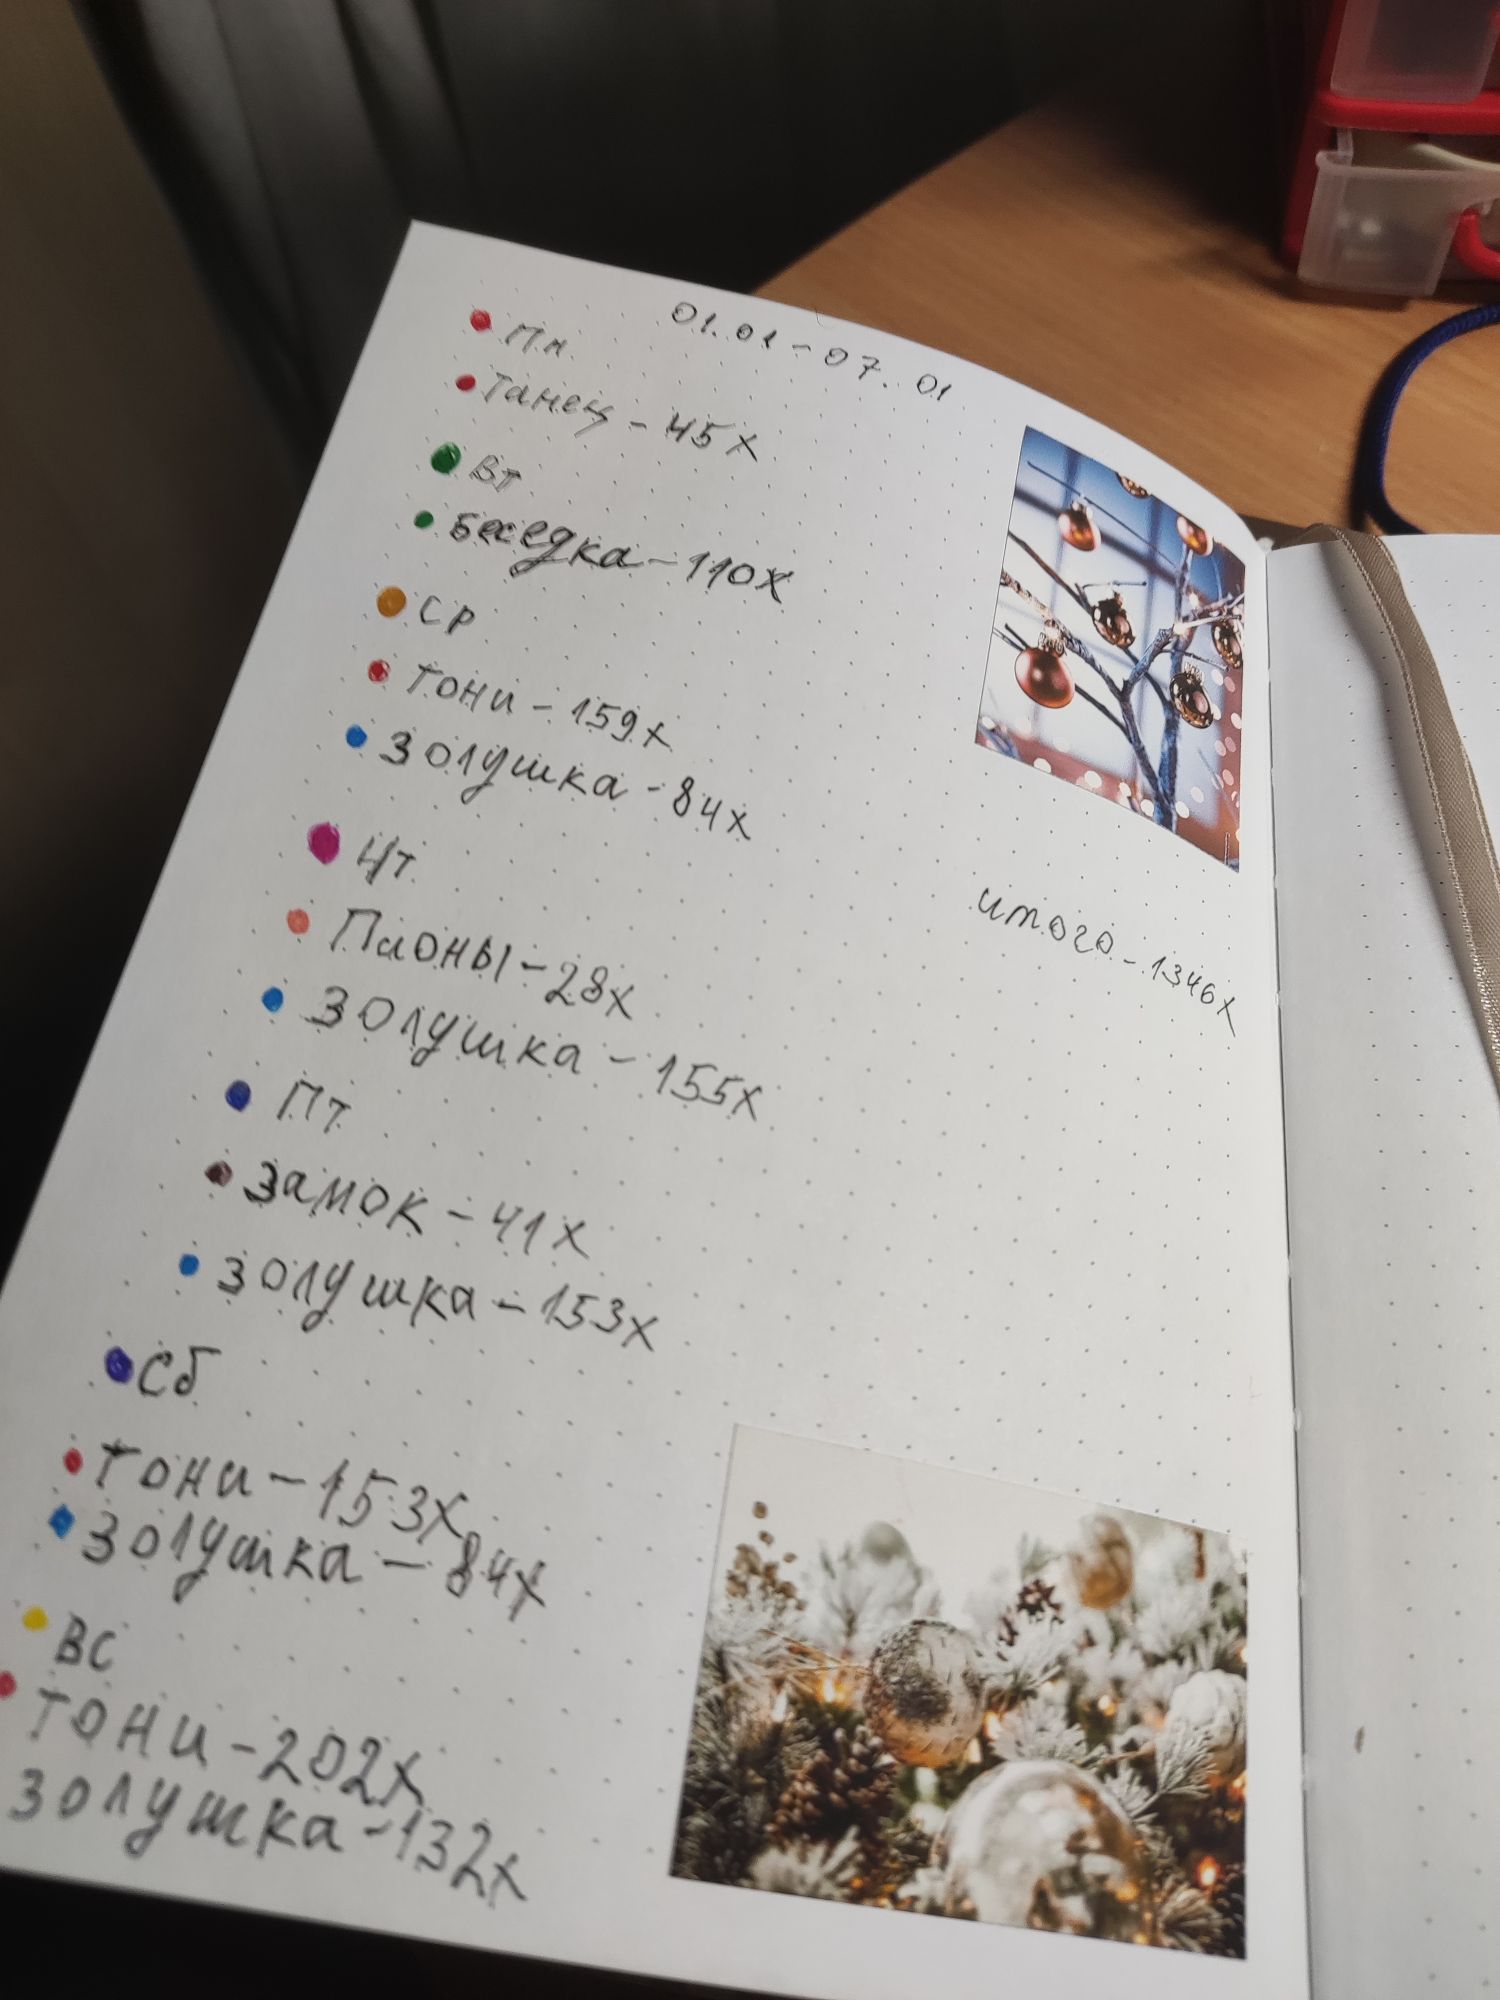 01.01 - 07.01
Пн
Танец - 45х
Вт
Беседка - 110х
Ср
Тони - 159х
Золушка - 84х
Чт
Пионы - 28х
Золушка - 155х
Пт
Замок - 41х
Золушка - 153х
Сб
Тони - 153х
Золушка - 84х
Вс
Тони - 202х
Золушка - 132х
итого - 1346х